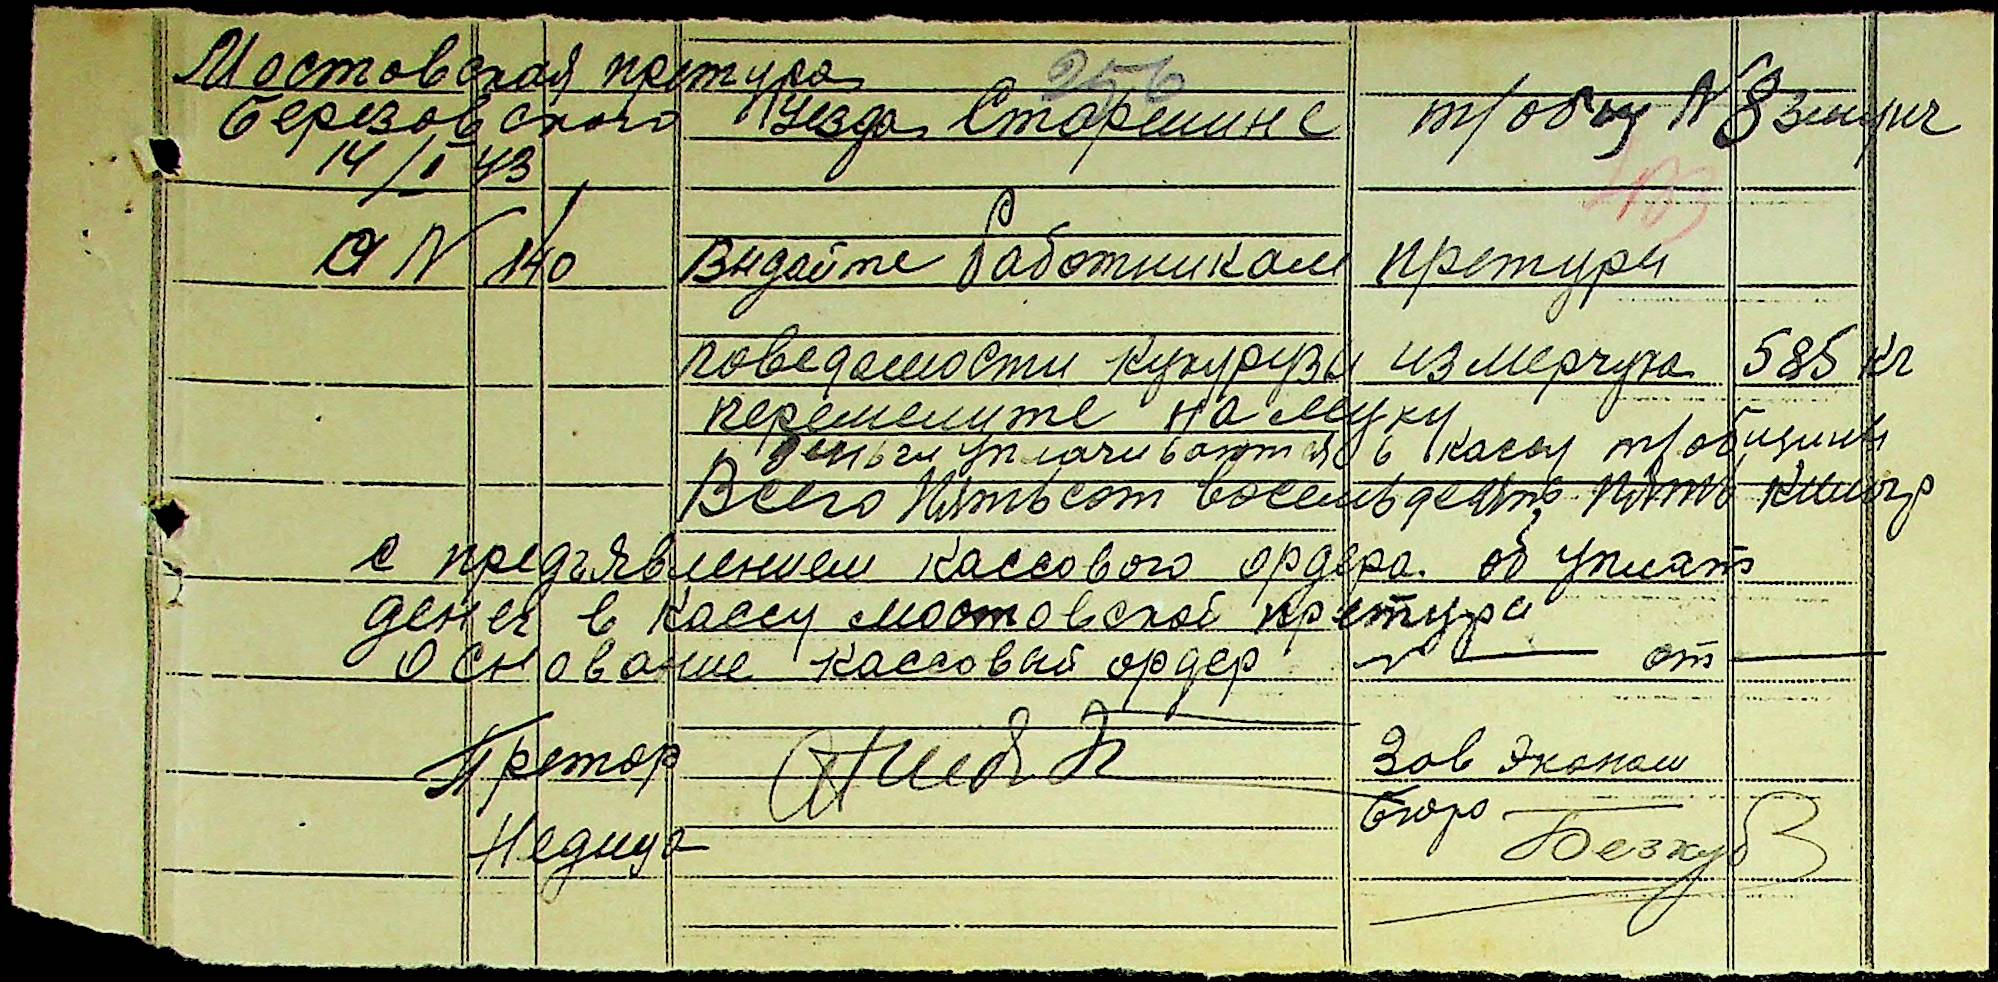 Мостовская претура 256
Березовского Уезда Старшине т/общ N 8
14/I 43
N 140 Видайте Работникам претури
поведомости кукурузи измерчука 585 кг
перемелите на муку
деньги уплачиваются в кассу т/общини
Всего Пятьсот восемьдесят пять килогр
с предъявлением кассового ордера. об уплате
денег в кассу мостовской претури
Основание кассовый ордер N — от —
Претор Зав Эконом
Бюро
Недига Безкуб